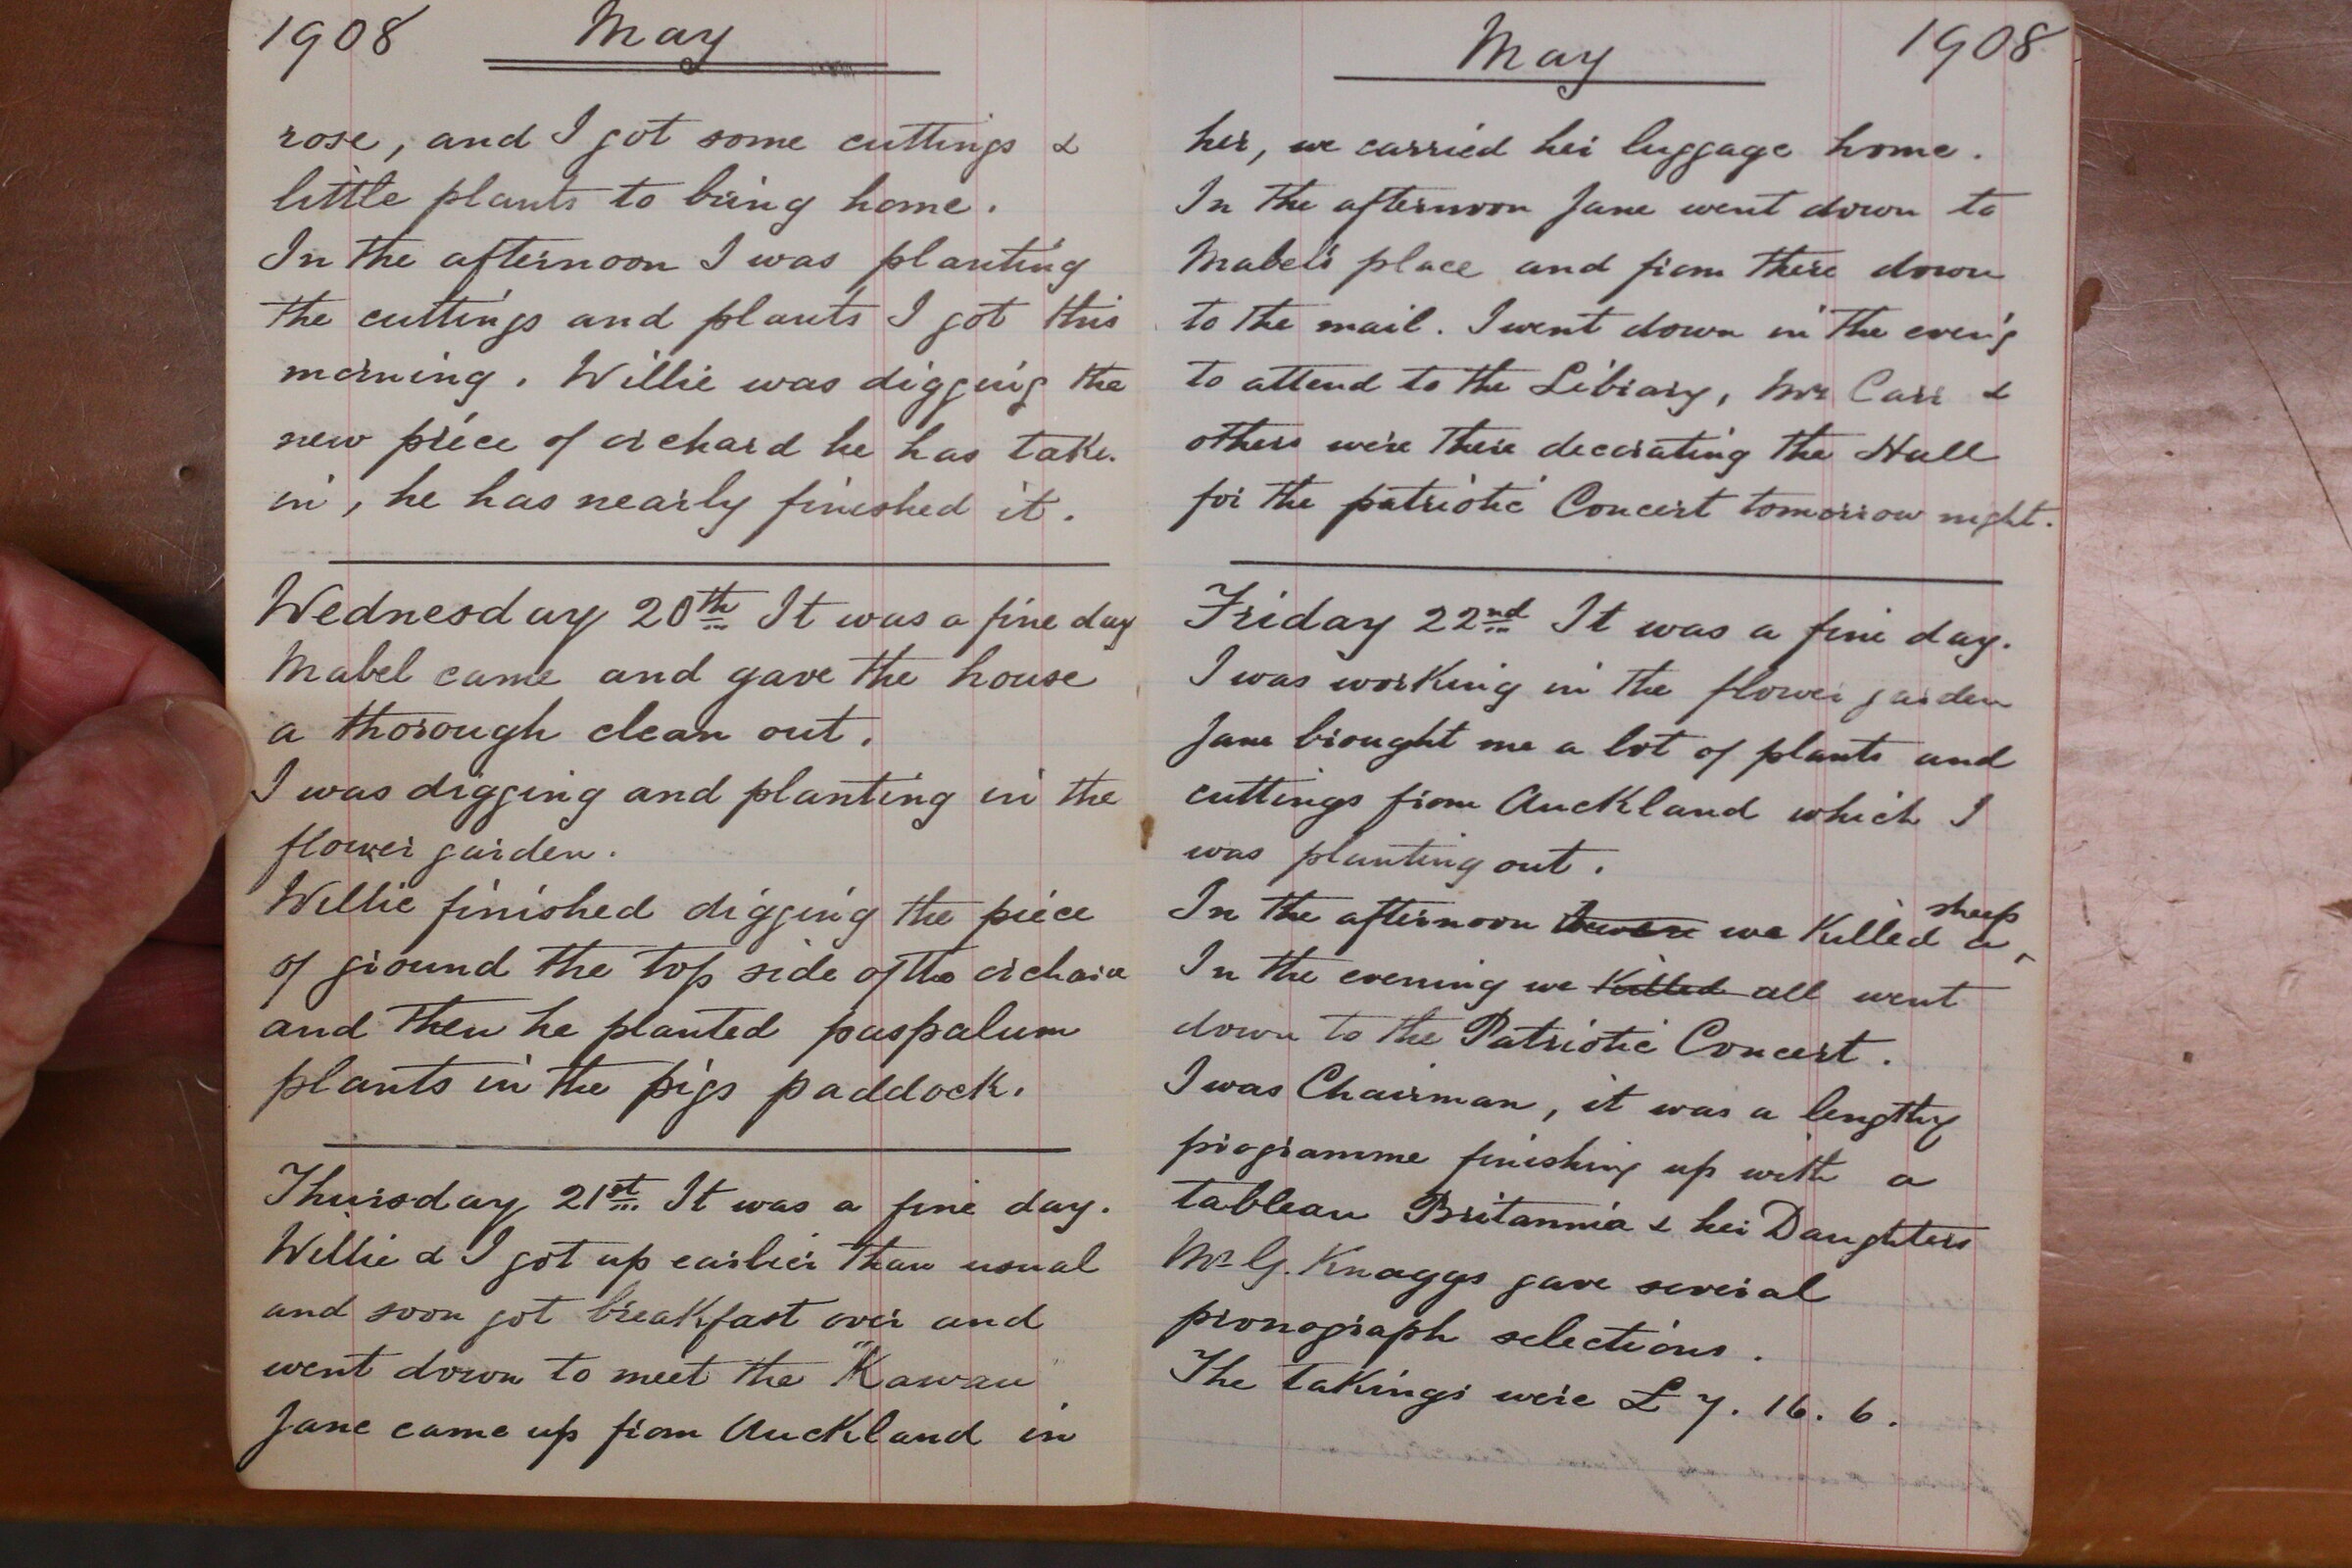 1908 May
rose, and I got some cuttings &
little plants to bring home.
In the afternoon I was planting
the cuttings and plants I got this
morning. Willie was digging the
new piece of orchard he has take.
in, he has nearly finished it.
Wednesday 20th It was a fine day
Mabel came and gave the house
a thorough clean out.
I was digging and planting in the
flower garden.
Willie finished digging the piece
of ground the top side of the
and then he planted paspalum
plants in the pigs paddock.
Thursday 21st It was a fine day.
Willie & I got up earlier than usual
and soon got breakfast over and
went down to meet the "Kawau"
Jane came up from Auckland in
May 1908
her, we carried her luggage home.
In the afternoon Jane went down to
Mabel's place and from there down
to the mail. I went down in the even'g
to attend to the Library, Mr Carr &
others were there decorating the Hall
for the patriotic Concert tomorrow night.
Friday 22nd It was a fine day.
I was working in the flower garden
Jane brought me a lot of plants and
cuttings from Auckland which I
was planting out.
In the afternoon we killed a sheep
In the evening we killed all went
down to the Patriotic Concert.
I was Chairman, it was a lengthy
programme finishing up with a
tableau Britannia & her Daughters
Mr G. Knaggs gave several
pronograph selections.
The takings were £7.16.6.